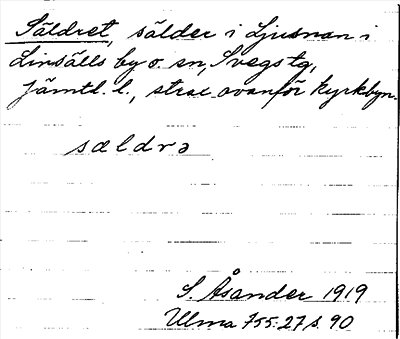 Säldret, sälder i Ljusnan i
Linsälls by o. sn, Svegs tg,
Jämtl. l., strax ovanför kyrkbyn.
sældrə
S. Åsander 1919
Ulma 755:27 s. 90